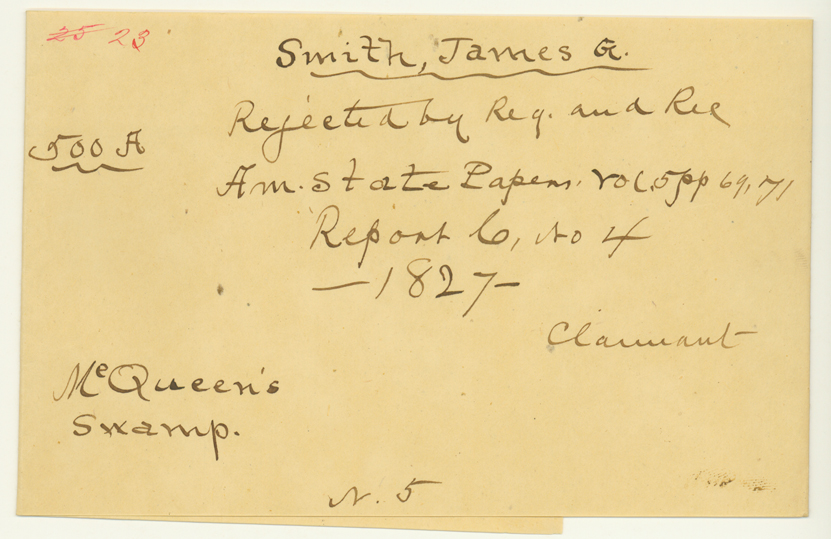 25 23
Smith, James G.
Rejected by Reg. and Rec
500 A
Am. State Papers. Vol. 5 pp 69, 71
Report 6, No 4
— 1827 —
Claimant
McQueen's
Swamp.
N. 5